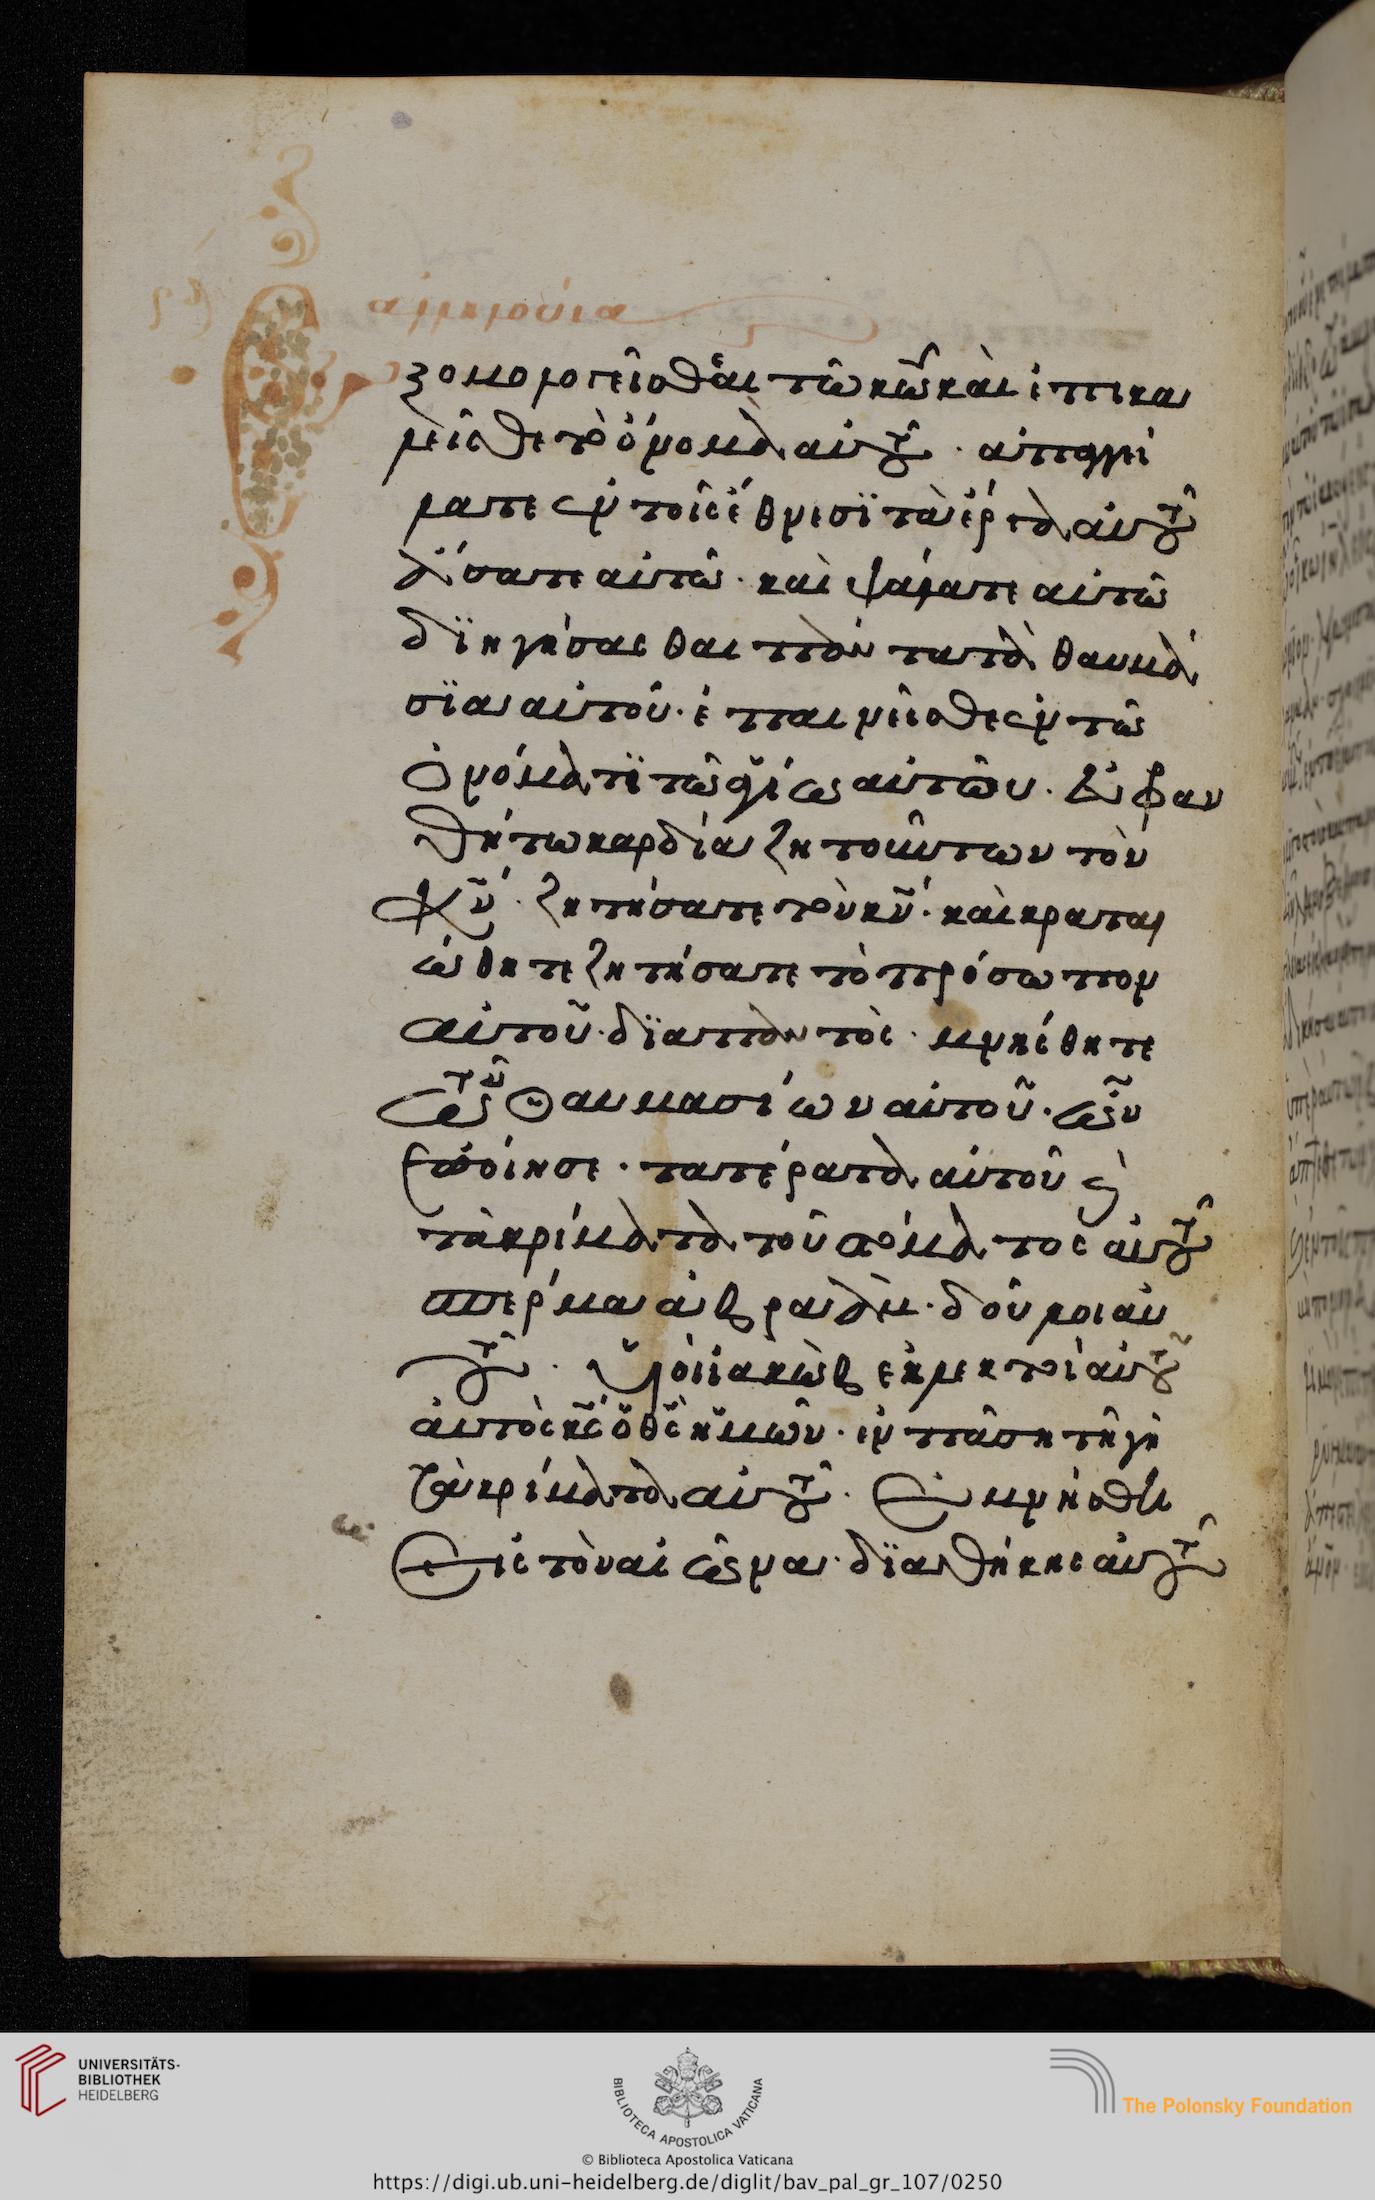 ρδ
αλληλούϊα
ξομολογεῖσθαι τῶ κῶ καὶ ἐπικα
λεῖσθε τὸ ὄνομα αὐτοῦ · ἀπαγγεί
λατε ἐν τοῖς ἔθνεσϊ τὰ ἔργα αὐτοῦ
ἄσατε αὐτῶ · καὶ ψάλατε αὐτῶ
δϊηγήσασθαι πάντα τὰ θαυμά
σϊα αὐτοῦ · ἐπαινεῖσθε ἐν τῶ
ὀνόματϊ τῶ ἁγίω αὐτοῦ · εὐφραν
θήτω καρδία ζητούντων τὸν
κν · ζητήσατε τὸν κν · καὶ κραται
ώθητε ζητήσατε τὸ πρόσωπον
αὐτοῦ · δϊαπαντός · μνήσθητε
τῶν θαυμασίων αὐτοῦ · ὧν
ἐποίησε · τα τέρατα αὐτοῦ καὶ
τὰ κρίματα τοῦ στόματος αὐτοῦ
σπέρμα ἀβραὰμ · δοῦλοι αὐ
τοῦ · υἱοὶ ἰακὼβ ἐκλεκτοὶ αὐτοῦ
αὐτὸς κς ὁ θς ἡμῶν · ἐν πάση τῆ γῆ
τὰ κρίματα αὐτοῦ · Ἐμνήσθη
εἰς τὸν αἰῶνα · δϊαθήκης αὐτοῦ
UNIVERSITÄTS-
BIBLIOTHEK
HEIDELBERG
BIBLIOTECA APOSTOLICA VATICANA
The Polonsky Foundation
© Biblioteca Apostolica Vaticana
https://digi.ub.uni-heidelberg.de/diglit/bav_pal_gr_107/0250